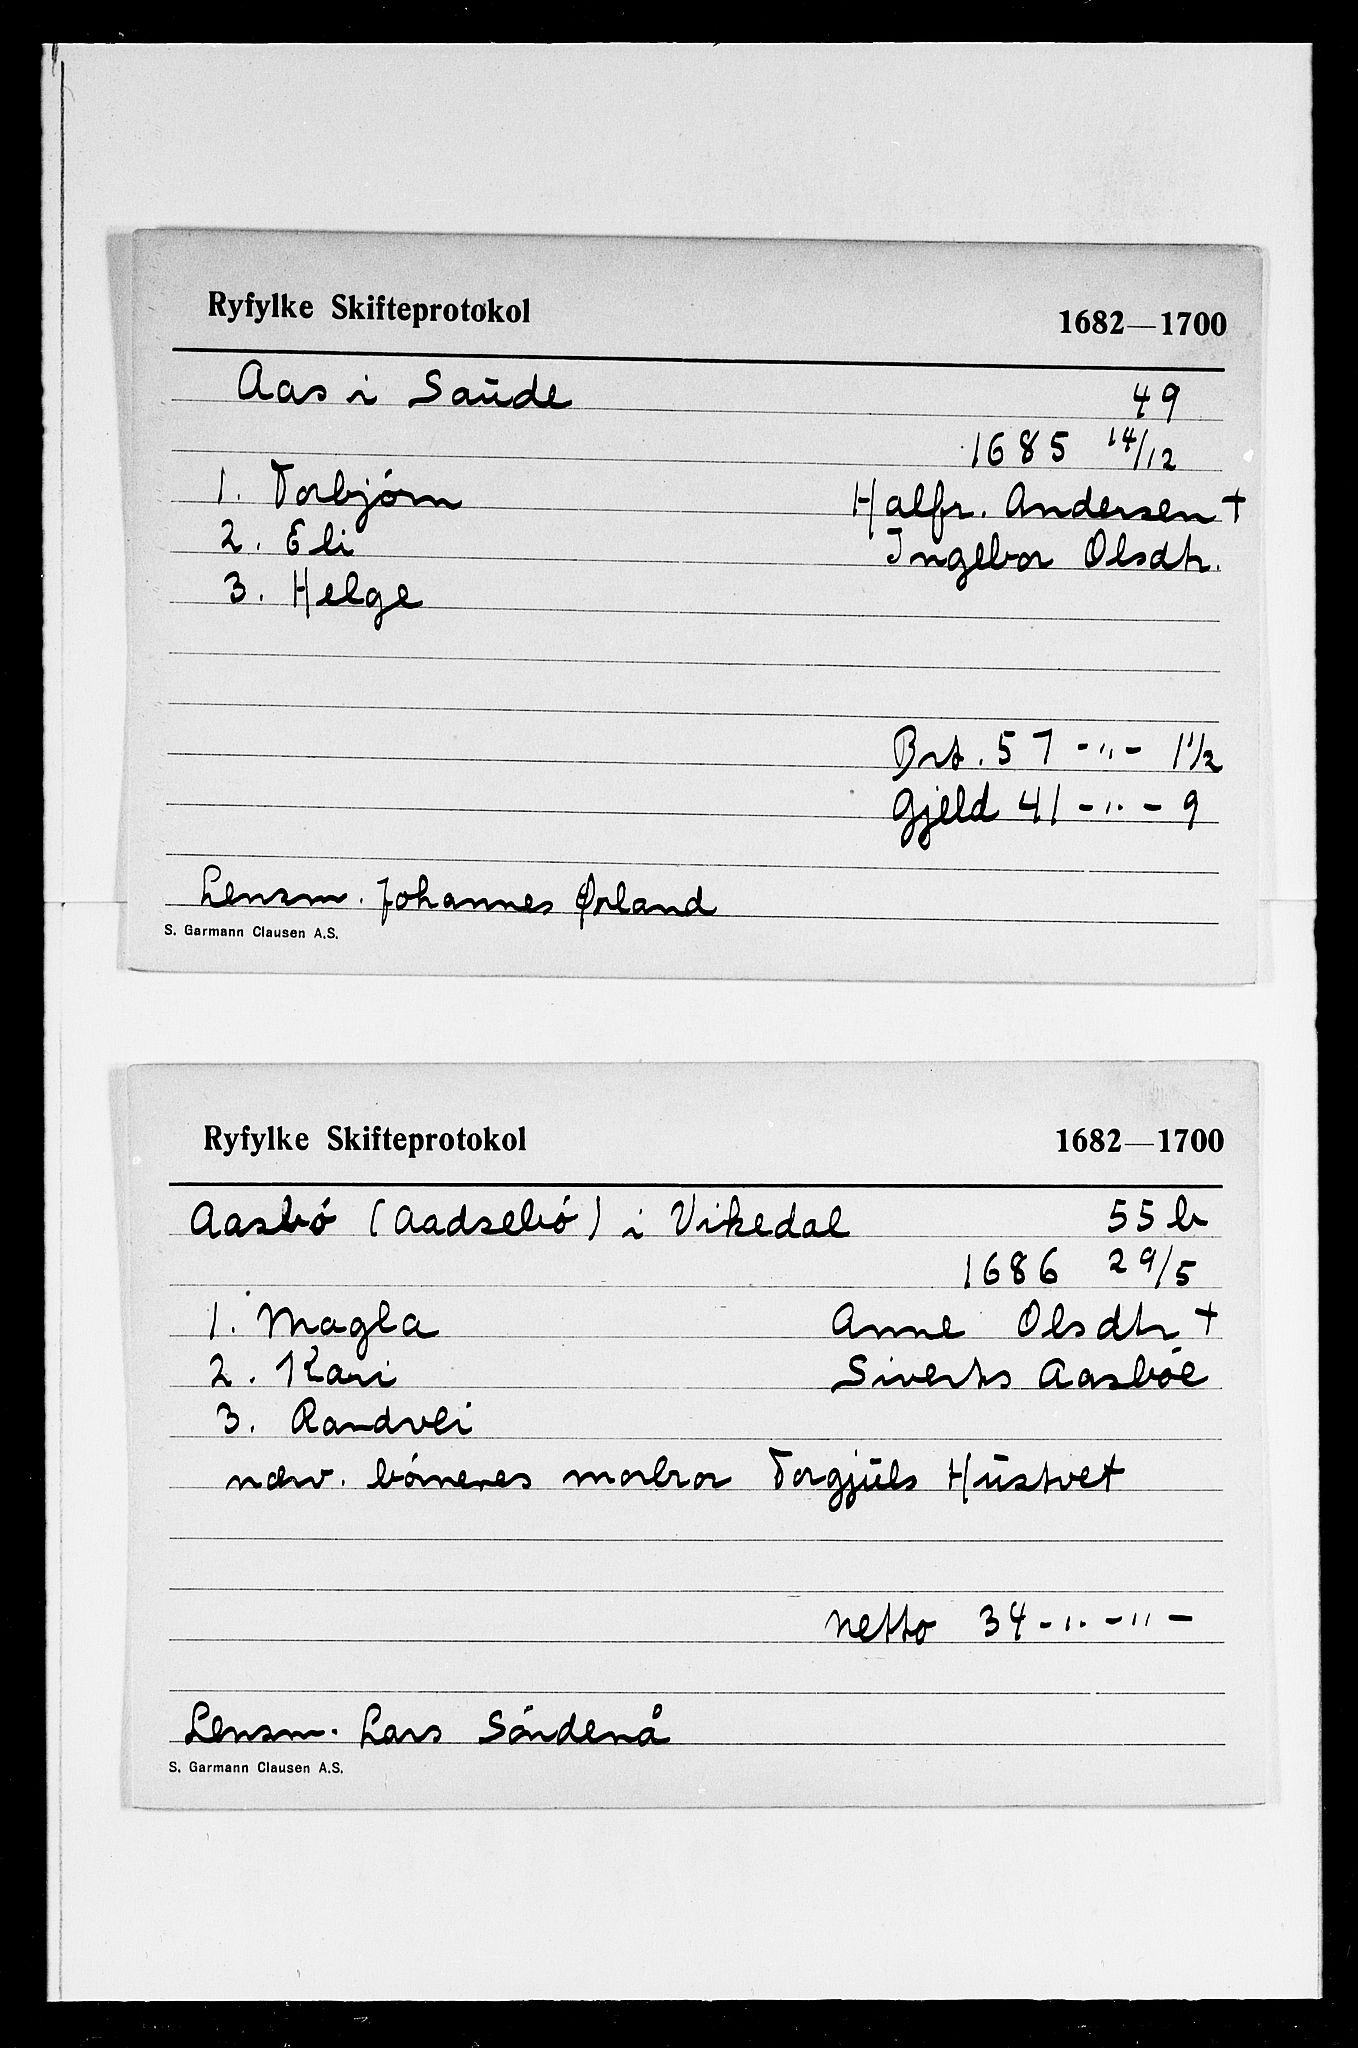 Ryfylke Skifteprotokol 1682—1700
Aas i Saude 49
1685 14/12
1. Torbjørn Halfr. Andersen †
2. Eli Ingebor Olsdtr.
3. Helge
Brt. 57 - " - 1 1/2
Gjeld 41 - " - 9
Lensm. Johannes Ørland
S. Garmann Clausen A.S.
Ryfylke Skifteprotokol 1682—1700
Aasbó (Aadsebó) i Vikedal 55 b
1686 29/5
1. Magla Anne Olsdtr †
2. Kari Siverts Aasbóe
3. Randvei
nærv. bórneres morbror Torgjüls Hüstvet
Netto 34 - " - " -
Lensm. Lars Sóndenå
S. Garmann Clausen A.S.